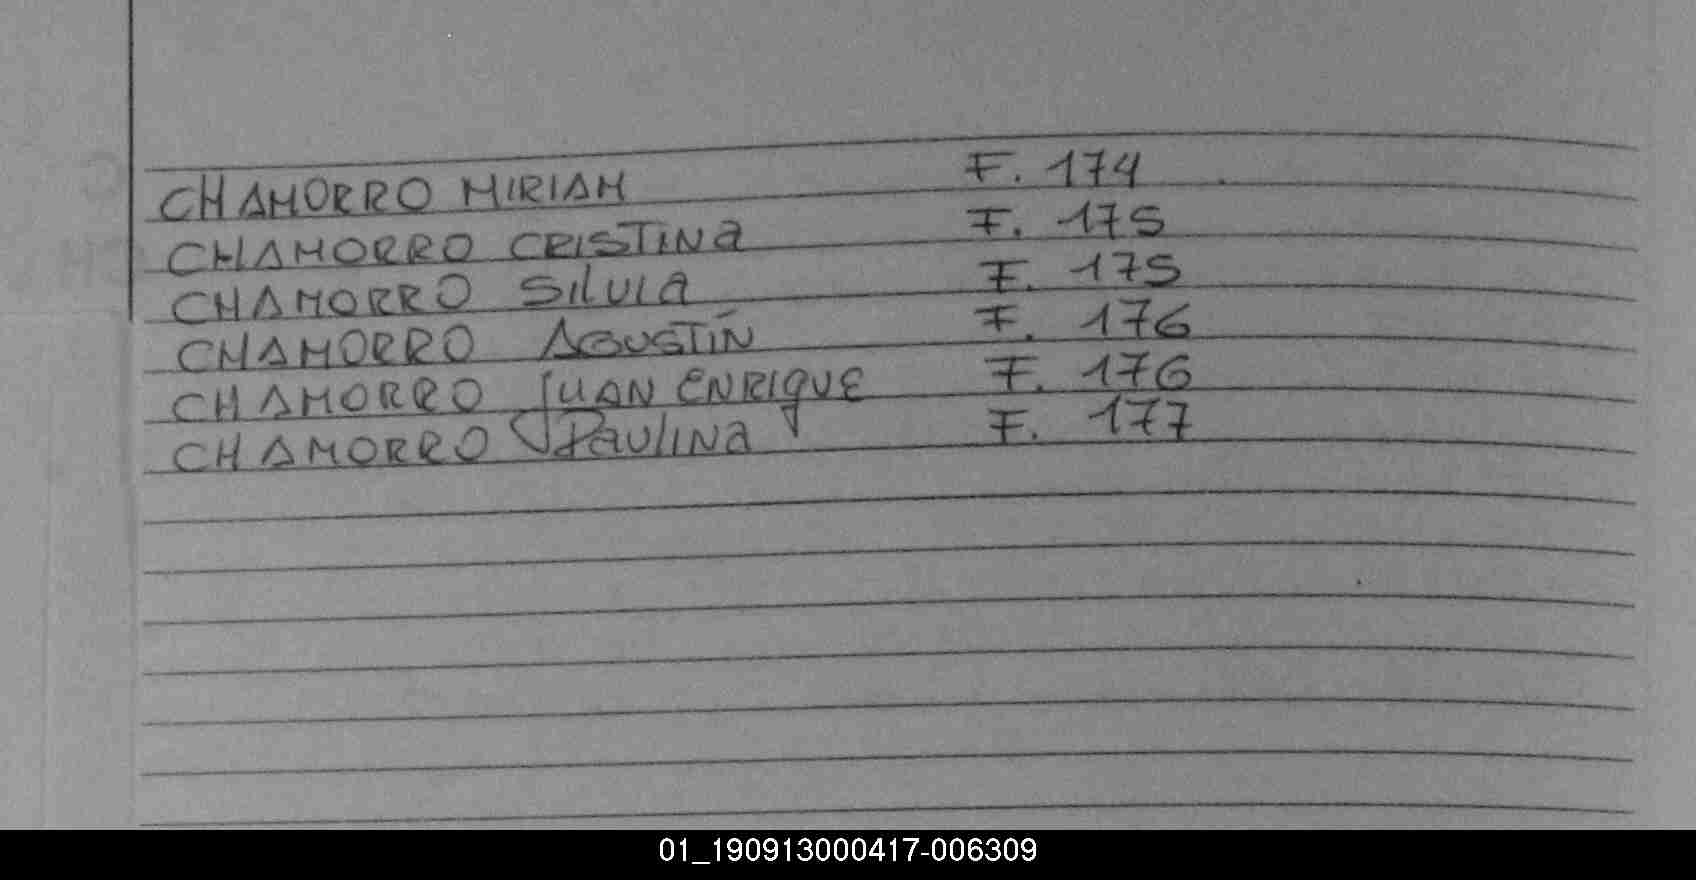 CHAMORRO MIRIAM F. 174
CHAMORRO CRISTINA F. 175
CHAMORRO SILVIA F. 175
CHAMORRO AGUSTÍN F. 176
CHAMORRO JUAN ENRIQUE F. 176
CHAMORRO PAULINA F. 177
01_190913000417-006309